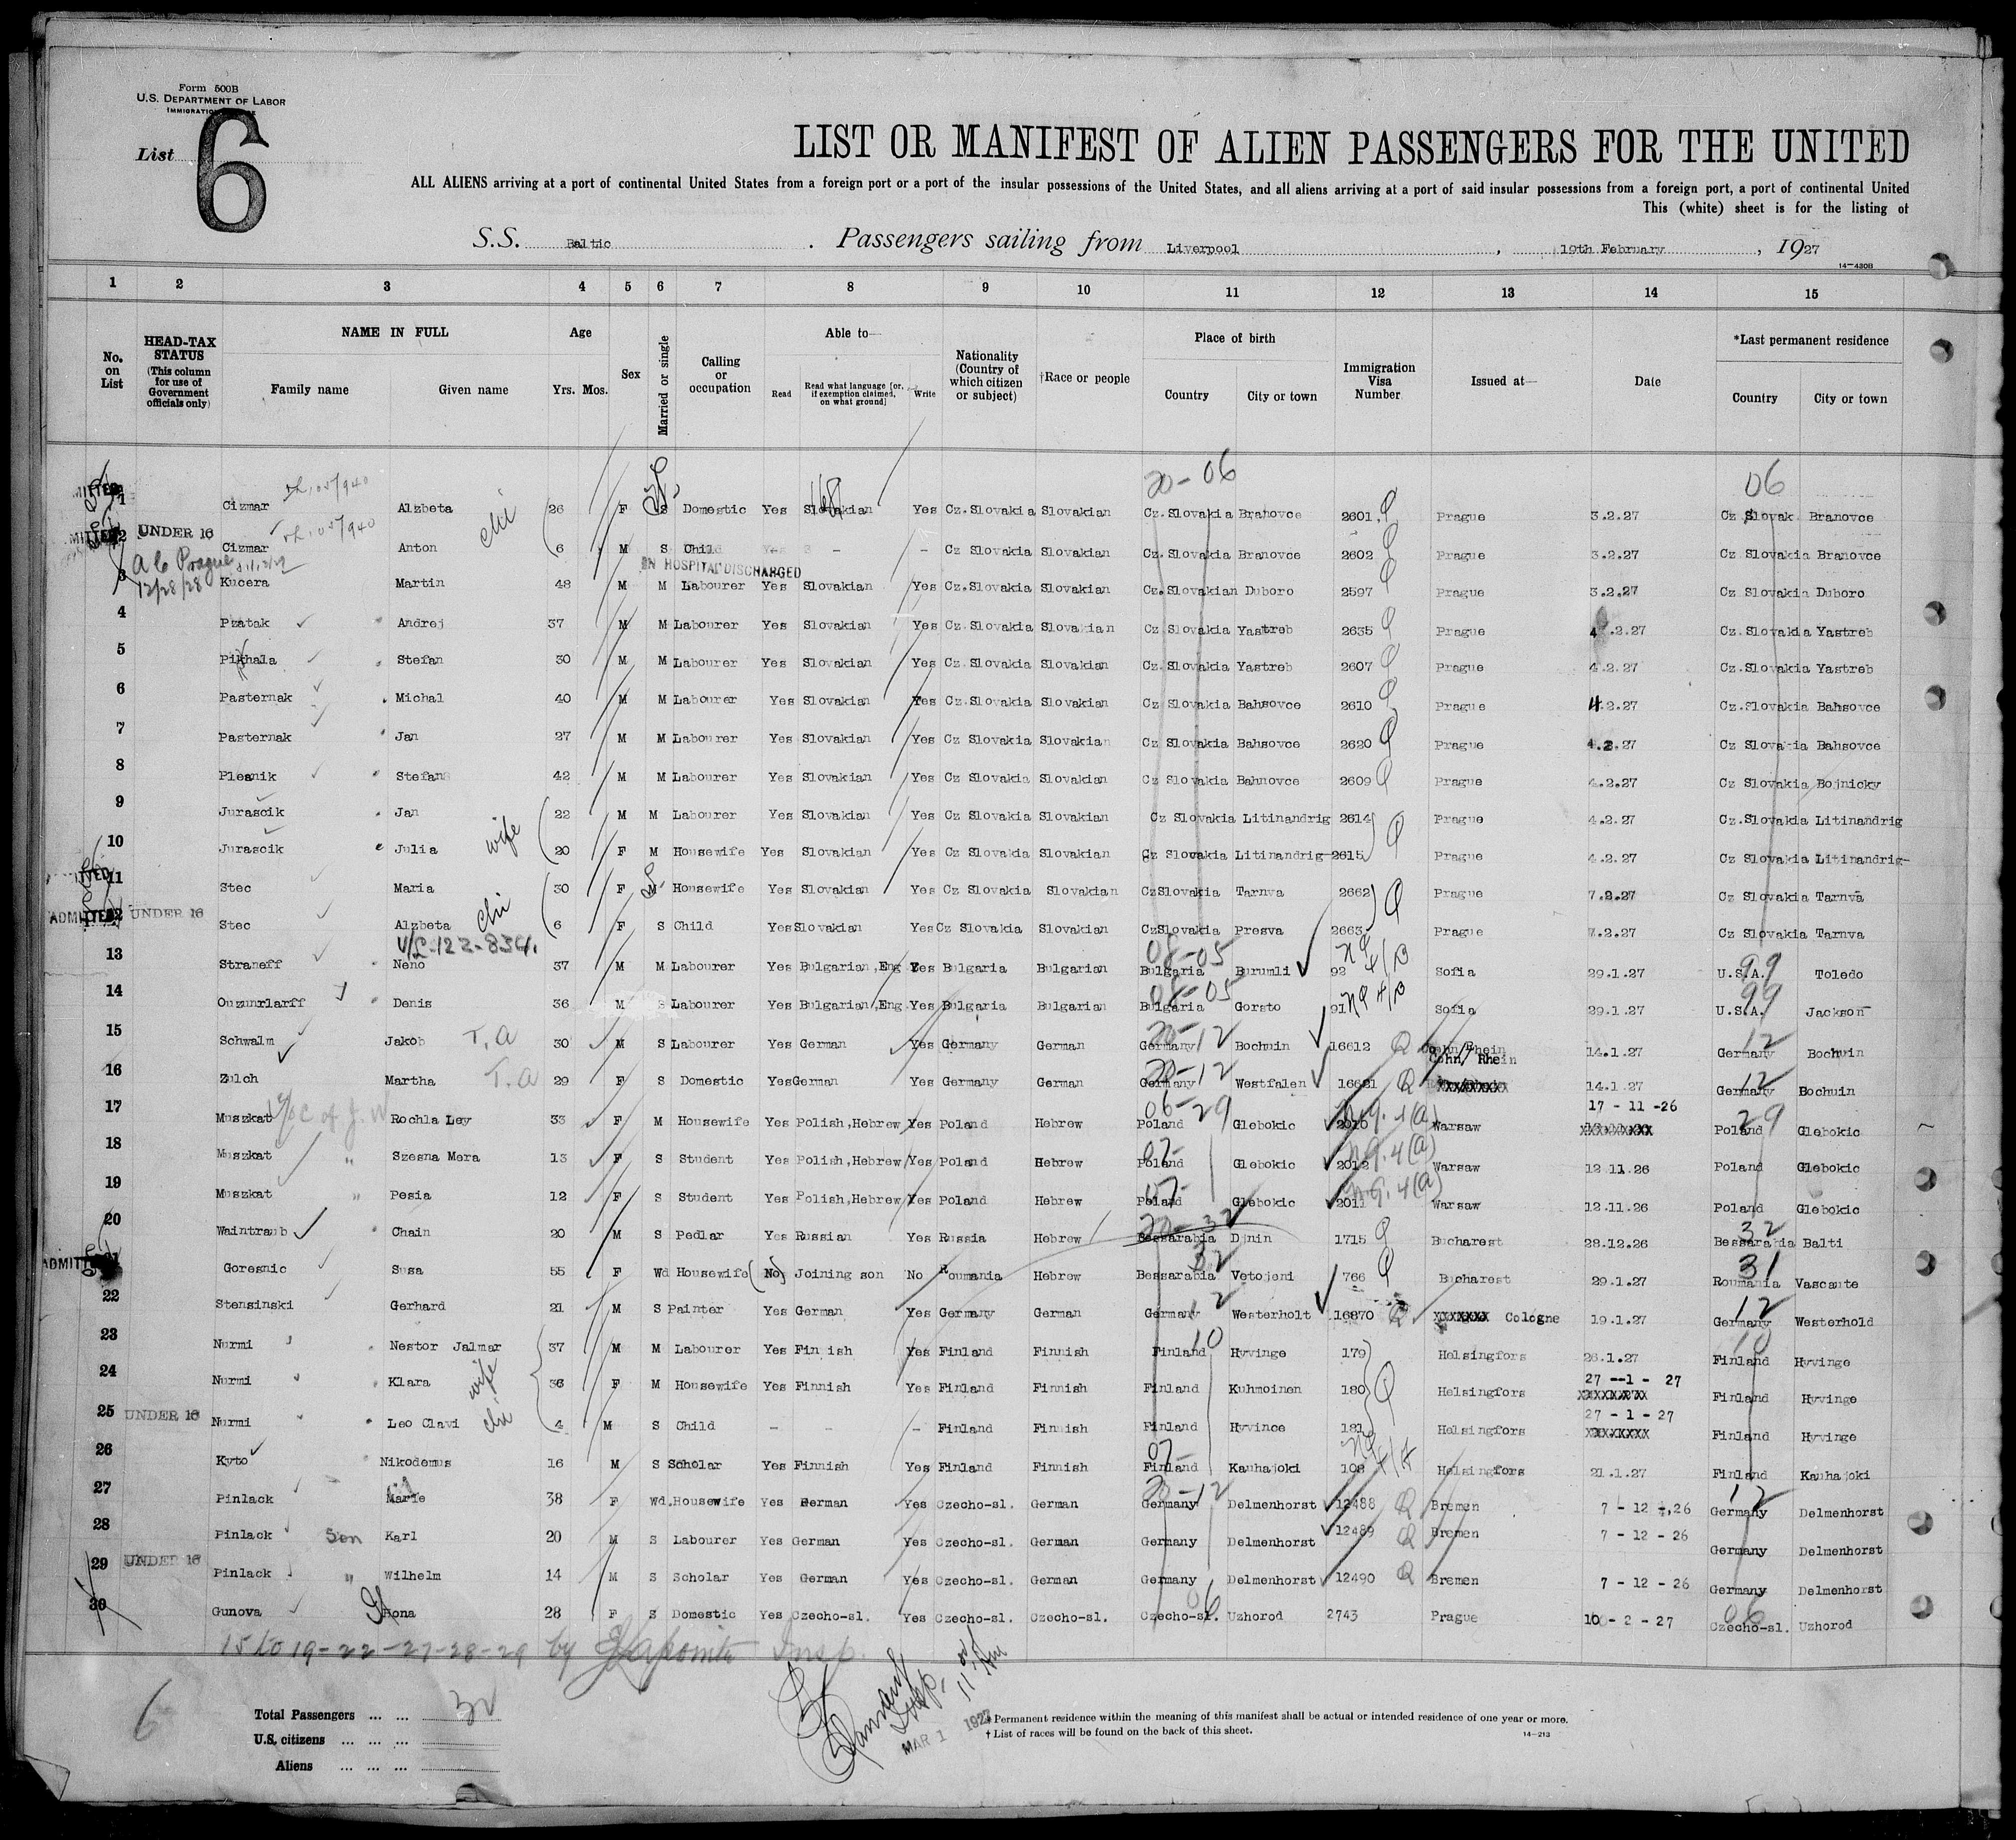 Form 500B
U.S. DEPARTMENT OF LABOR
List 6
LIST OR MANIFEST OF ALIEN PASSENGERS FOR THE UNITED
ALL ALIENS arriving at a port of continental United States from a foreign port or a port of the insular possessions of the United States, and all aliens arriving at a port of said insular possessions from a foreign port, a port of continental United
This (white) sheet is for the listing of
S.S. Baltic . Passengers sailing from Liverpool , 19th February , 1927
14—430B
1 2 3 4 5 6 7 8 9 10 11 12 13 14 15
No. on List
HEAD-TAX STATUS (This column for use of Government officials only)
NAME IN FULL Family name Given name
Age Yrs. Mos.
Sex
Married or single
Calling or occupation
Able to— Read Read what language [or, if exemption claimed, on what ground] Write
Nationality (Country of which citizen or subject)
†Race or people
Place of birth Country City or town
Immigration Visa Number
Issued at—
Date
*Last permanent residence Country City or town
20-06 06
1 Cizmar Alzbeta 26 F S Domestic Yes Slovakian Yes Cz.Slovakia Slovakian Cz.Slovakia Branovce 2601 Prague 3.2.27 Cz Slovak Branovce
2 UNDER 16 Cizmar Anton chi 6 M S Child - - Cz Slovakia Slovakian Cz.Slovakia Branovce 2602 Prague 3.2.27 Cz Slovakia Branovce
IN HOSPITAL DISCHARGED
a c Prague 12/28/28
3 Kucera Martin 48 M M Labourer Yes Slovakian Yes Cz.Slovakia Slovakian Cz.Slovakian Duboro 2597 Prague 3.2.27 Cz Slovakia Duboro
4 Pzatak Andrej 37 M M Labourer Yes Slovakian Yes Cz.Slovakia Slovakian Cz Slovakia Yastreb 2635 Prague 4.2.27 Cz.Slovakia Yastreb
5 Pikhala Stefan 30 M M Labourer Yes Slovakian Yes Cz.Slovakia Slovakian Cz.Slovakia Yastreb 2607 Prague 4.2.27 Cz.Slovakia Yastreb
6 Pasternak Michal 40 M M Labourer Yes Slovakian Yes Cz.Slovakia Slovakian Cz Slovakia Bahsovce 2610 Prague 4.2.27 Cz.Slovakia Bahsovce
7 Pasternak Jan 27 M M Labourer Yes Slovakian Yes Cz Slovakia Slovakian Cz Slovakia Bahsovce 2620 Prague 4.2.27 Cz Slovakia Bahsovce
8 Plesnik Stefan 42 M M Labourer Yes Slovakian Yes Cz Slovakia Slovakian Cz Slovakia Bahnovce 2609 Prague 4.2.27 Cz Slovakia Bojnicky
9 Jurascik Jan 22 M M Labourer Yes Slovakian Yes Cz Slovakia Slovakian Cz Slovakia Litinandrig 2614 Prague 4.2.27 Cz.Slovakia Litinandrig
10 Jurascik Julia wife 20 F M Housewife Yes Slovakian Yes Cz Slovakia Slovakian Cz Slovakia Litinandrig 2615 Prague 4.2.27 Cz Slovakia Litinandrig
11 Stec Maria 30 F M Housewife Yes Slovakian Yes Cz Slovakia Slovakian CzSlovakia Tarnva 2662 Prague 7.2.27 Cz Slovakia Tarnva
ADMITTED 12 UNDER 16 Stec Alzbeta chi 6 F S Child Yes Slovakian Yes Cz Slovakia Slovakian CzSlovakia Presva 2663 Prague 7.2.27 Cz Slovakia Tarnva
V/L-122-834. 08-05 99
13 Straneff Neno 37 M M Labourer Yes Bulgarian,Eng Yes Bulgaria Bulgarian Bulgaria Burumli 92 Sofia 29.1.27 U.S.A. Toledo
08-05 99
14 Ouzunrlarff Denis 36 M S Labourer Yes Bulgarian,Eng Yes Bulgaria Bulgarian Bulgaria Gorsto 91 Sofia 29.1.27 U.S.A. Jackson
20-12 12
15 Schwalm Jakob T.A 30 M S Labourer Yes German Yes Germany German Germany Bochuin 16612 Cohn/Rhein 14.1.27 Germany Bochuin
20-12 12 Cohn/Rhein
16 Zulch Martha T.A 29 F S Domestic Yes German Yes Germany German Germany Westfalen 16621 XXXXXXXXX 14.1.27 Germany Bochuin
06-29 29 17 - 11 -26
17 Muszkat Rochla Ley 33 F M Housewife Yes Polish,Hebrew Yes Poland Hebrew Poland Glebokic 2010 n.q. 4(a) Warsaw XXXXXXXXX Poland Glebokic
18 Muszkat " Szesna Mera 13 F S Student Yes Polish,Hebrew Yes Poland Hebrew Poland Glebokic 2012 n.q. 4(a) Warsaw 12.11.26 Poland Glebokic
19 Muszkat " Pesia 12 F S Student Yes Polish,Hebrew Yes Poland Hebrew Poland Glebokic 2011 n.q. 4(a) Warsaw 12.11.26 Poland Glebokic
20-32 32
20 Waintraub Chain 20 M S Pedlar Yes Russian Yes Russia Hebrew Bessarabia Djnin 1715 Bucharest 28.12.26 Bessarabia Balti
32 31
ADMITTED 21 Goresnic Susa 55 F Wd Housewife (No) Joining son No Roumania Hebrew Bessarabia Vetojeni 766 Bucharest 29.1.27 Roumania Vascaute
12 12
22 Stensinski Gerhard 21 M S Painter Yes German Yes Germany German Germany Westerholt 16870 XXXXXXX Cologne 19.1.27 Germany Westerhold
10 10
23 Nurmi Nestor Jalmar 37 M M Labourer Yes Finnish Yes Finland Finnish Finland Hyvinge 179 Helsingfors 26.1.27 Finland Hyvinge
27 --1 - 27
24 Nurmi Klara wife 36 F M Housewife Yes Finnish Yes Finland Finnish Finland Kuhmoinen 180 Helsingfors XXXXXXXX Finland Hyvinge
27 - 1 - 27
25 UNDER 16 Nurmi Leo Clavi chi 4 M S Child - - - Finland Finnish Finland Hyvince 181 Helsingfors XXXXXXXX Finland Hyvinge
07-
26 Kyto Nikodemus 16 M S Scholar Yes Finnish Yes Finland Finnish Finland Kauhajoki 108 Helsingfors 21.1.27 Finland Kauhajoki
20-12 12
27 Pinlack Marie 38 F Wd. Housewife Yes German Yes Czecho-sl. German Germany Delmenhorst 12488 Bremen 7 - 12 -,26 Germany Delmenhorst
28 Pinlack Son Karl 20 M S Labourer Yes German Yes Czecho-sl. German Germany Delmenhorst 12489 Bremen 7 - 12 - 26 Germany Delmenhorst
29 UNDER 16 Pinlack " Wilhelm 14 M S Scholar Yes German Yes Czecho-sl. German Germany Delmenhorst 12490 Bremen 7 - 12 - 26 Germany Delmenhorst
06 06
30 Gunova Ilona 28 F S Domestic Yes Czecho-sl. Yes Czecho-sl. Czecho-sl. Czecho-sl. Uzhorod 2743 Prague 10 - 2 - 27 Czecho-sl. Uzhorod
15 to 19-22-27-28-29 by Insp.
6
Total Passengers ... ... 30
U.S. citizens ... ... ...
Aliens ... ... ...
Insp.
MAR 1 1927
* Permanent residence within the meaning of this manifest shall be actual or intended residence of one year or more.
† List of races will be found on the back of this sheet.
14—213